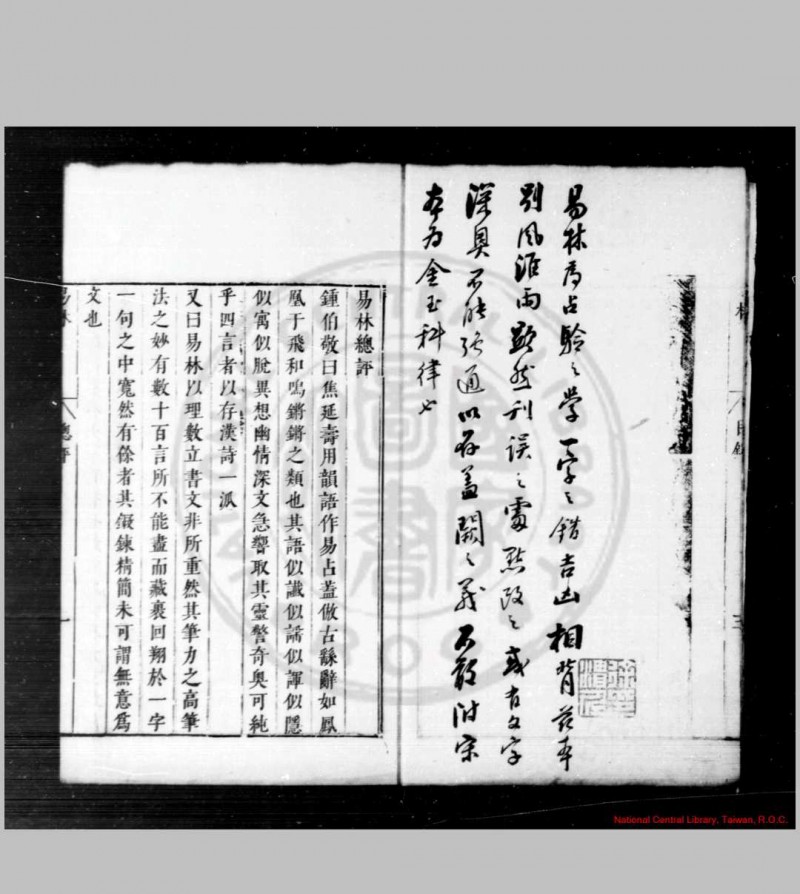 易林為占驗之學一字之錯吉凶相背茲本
別風淮雨顯然刊誤之處點改之或有文字
深奧不能强通以存蓋闕之義不敢附宋
本為金玉科律也
易林總評
鍾伯敬曰焦延壽用韻語作易占蓋倣古繇辭如鳳
凰于飛和鳴鏘鏘之類也其語似讖似謠似諢似隱
似寓似脫異想幽情深文急響取其靈警奇奧可純
乎四言者以存漢詩一派
又曰易林以理數立書文非所重然其筆力之高筆
法之妙有數十百言所不能盡而藏裹回翔於一字
一句之中寬然有餘者其鍜鍊精簡未可謂無意為
文也
易林
總評
一
National Central Library, Taiwan, R.O.C.